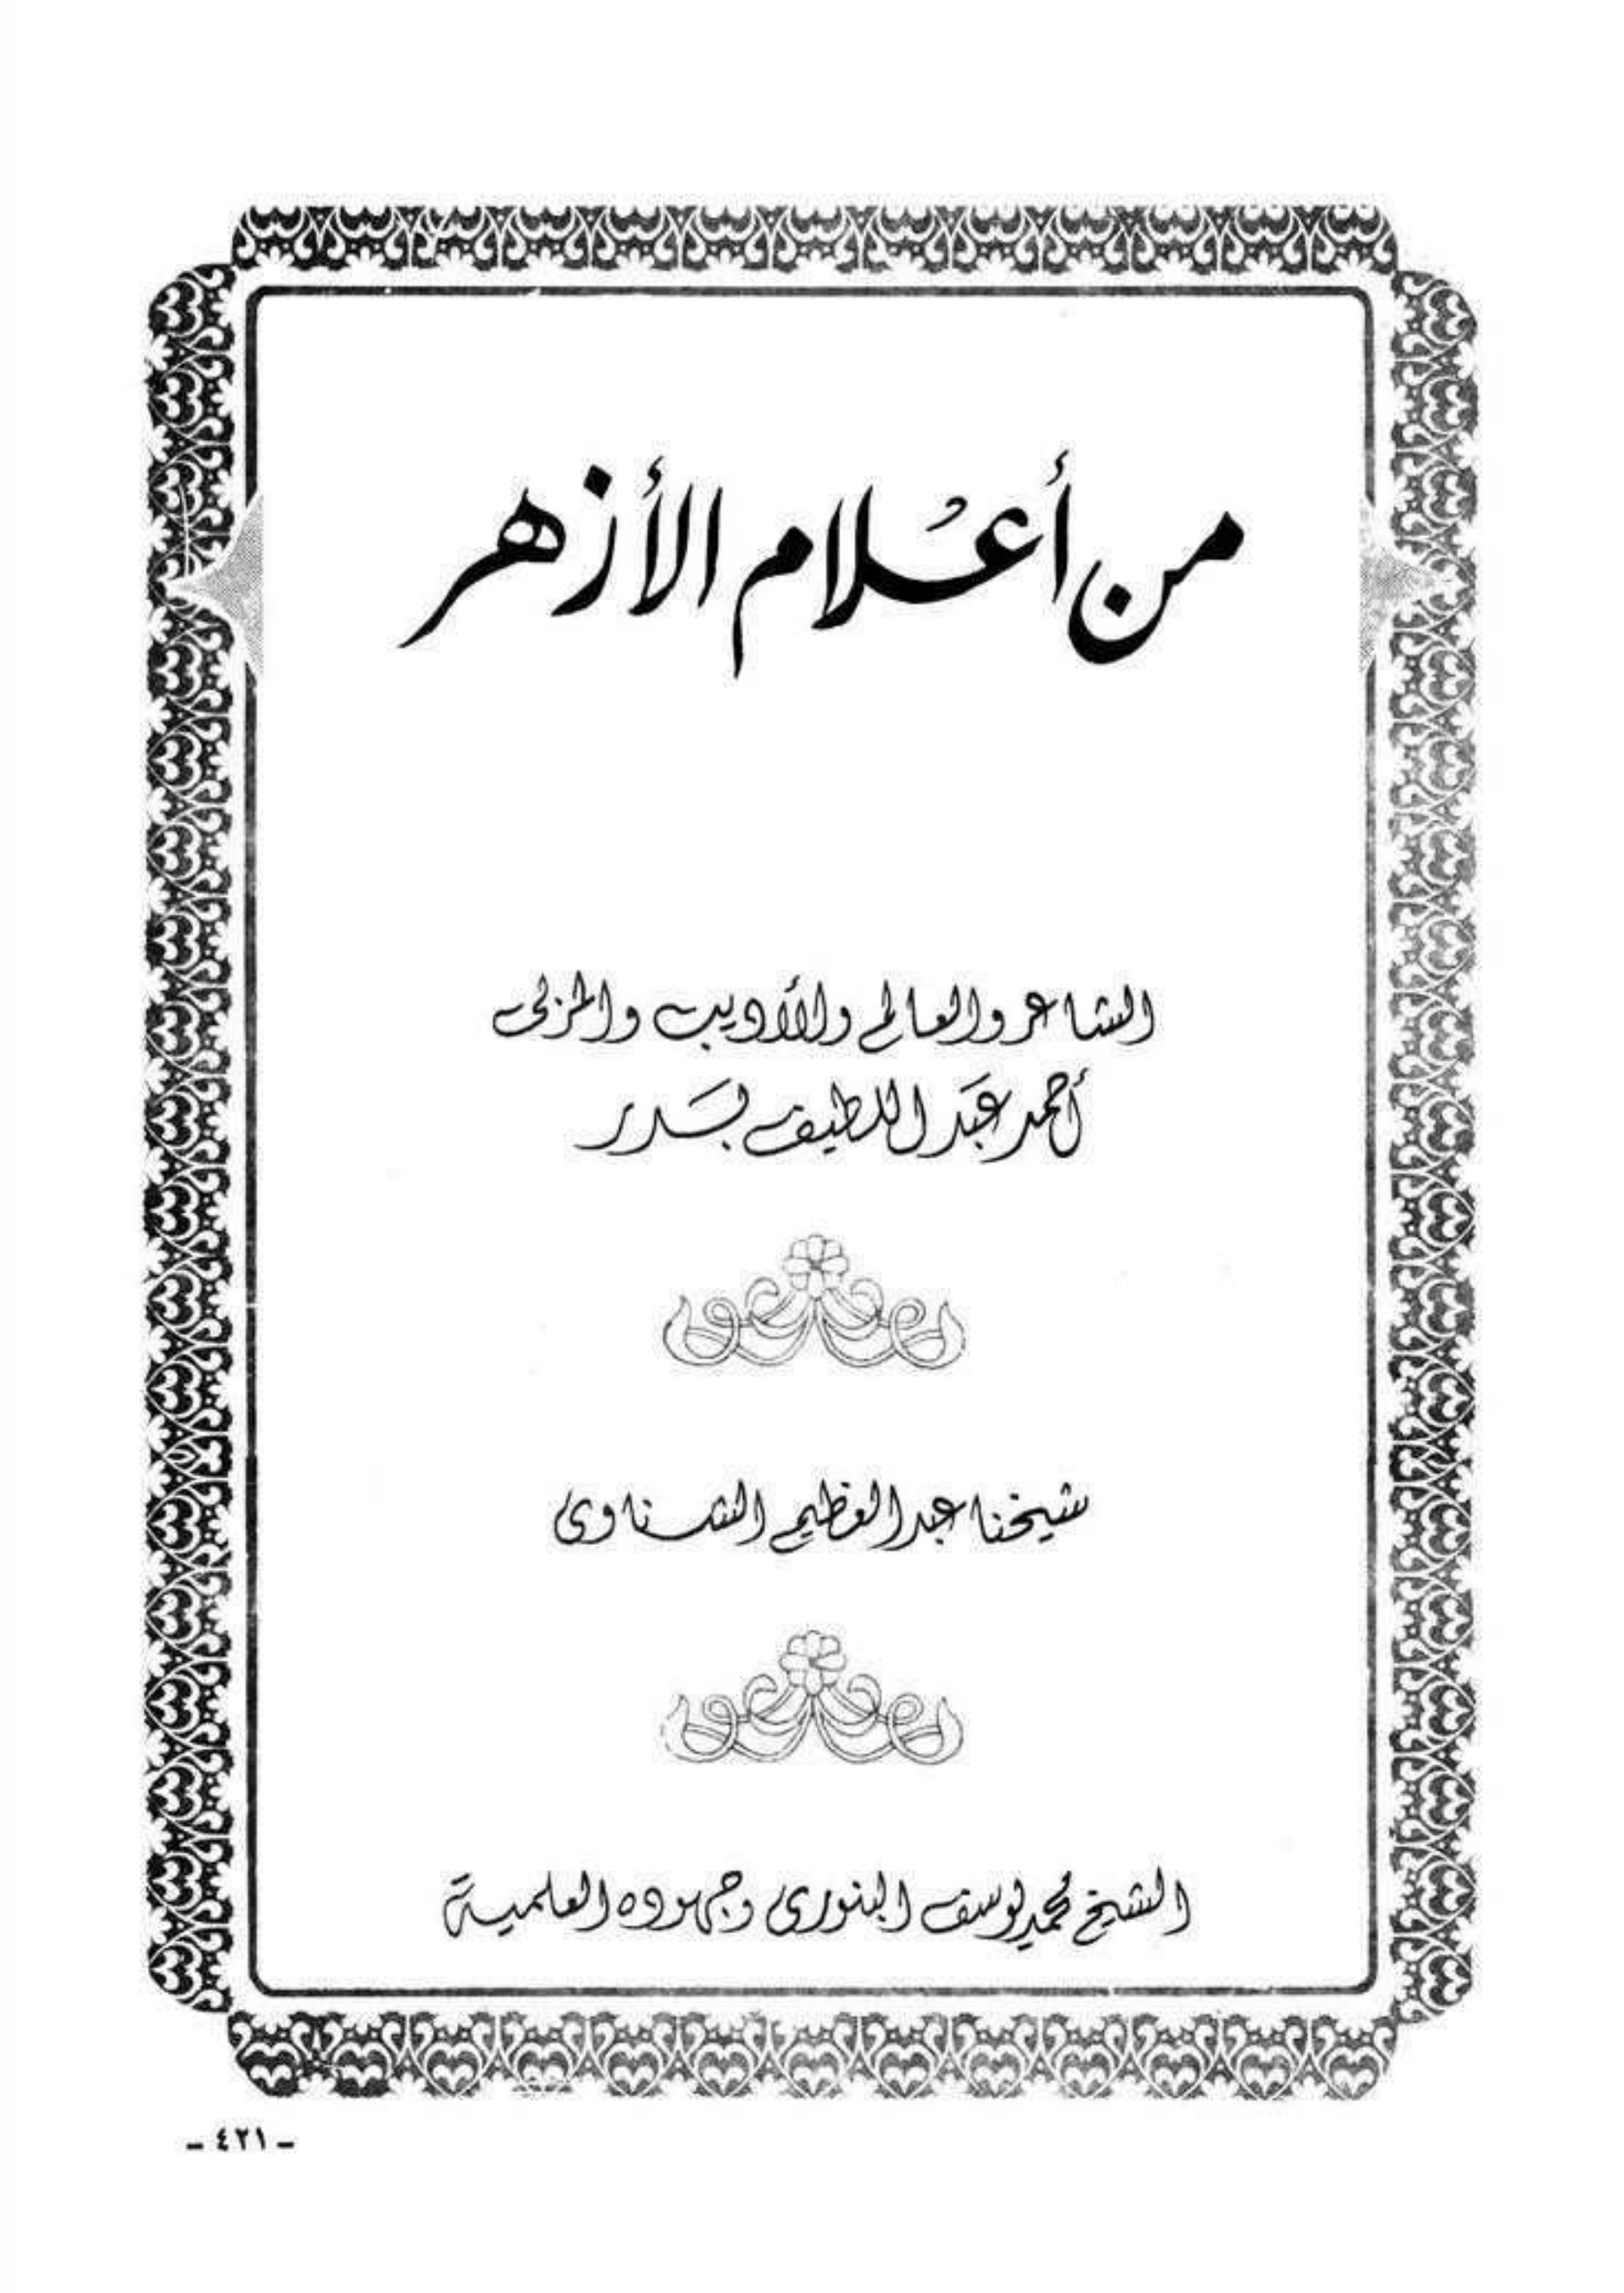 من أعلام الأزهر
الشاعر والعالم والأديب والمربى
أحمد عبد اللطيف بدر
شيخنا عبد العظيم الشناوى
الشيخ محمد يوسف البنورى وجهوده العلمية
- ٤٢١ -